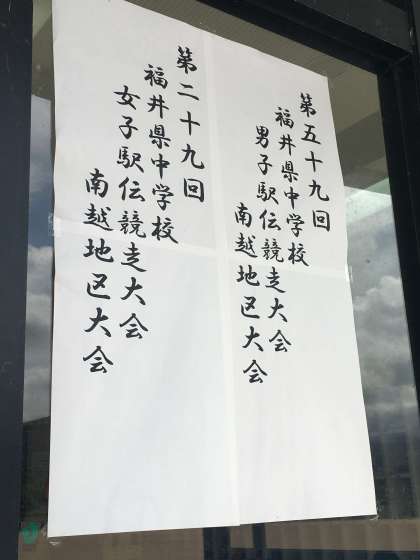 第五十九回
福井県中学校
男子駅伝競走大会
南越地区大会
第二十九回
福井県中学校
女子駅伝競走大会
南越地区大会